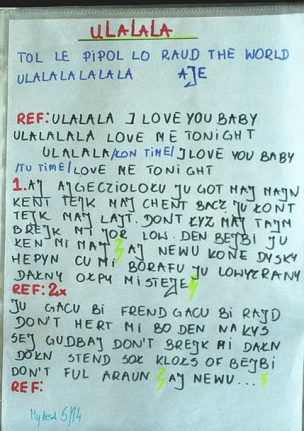 ULALALA
TOL LE PIPOL LO RAUD THE WORLD
ULALALALALALA AJE
REF: ULALALA I LOVE YOU BABY
ULALALALA LOVE ME TONIGHT
ULALALA /LON TIME/ I LOVE YOU BABY
/TU TIME/ LOVE ME TONIGHT
1. AJ AJGECZIOLOKU JU GOT MAJ MAJN
KENT TEJK MAJ CHENT BACZ JU ŁONT
TEJK MAJ LAJT. DONT KYZ MAJ TAJM
BREJK MI JOR LOW. DEN BEJBI JU
KEN MI MAJ AJ NEWU KONE DYSKY
HEPYN CU MI BORAFU JU LOWYCRANY
DAŁNY OŁPU MISTEJK
REF: 2x
JU GACU BI FREND GACU BI RAJD
DON'T HERT MI BO DEN NA KYS
SEJ GUDBAJ DON'T BREJK MI DAŁN
DOŁN STEND SOŁ KLOZS OF BEJBI
DON'T FUL ARAUN AJ NEWU...
REF:
5/14